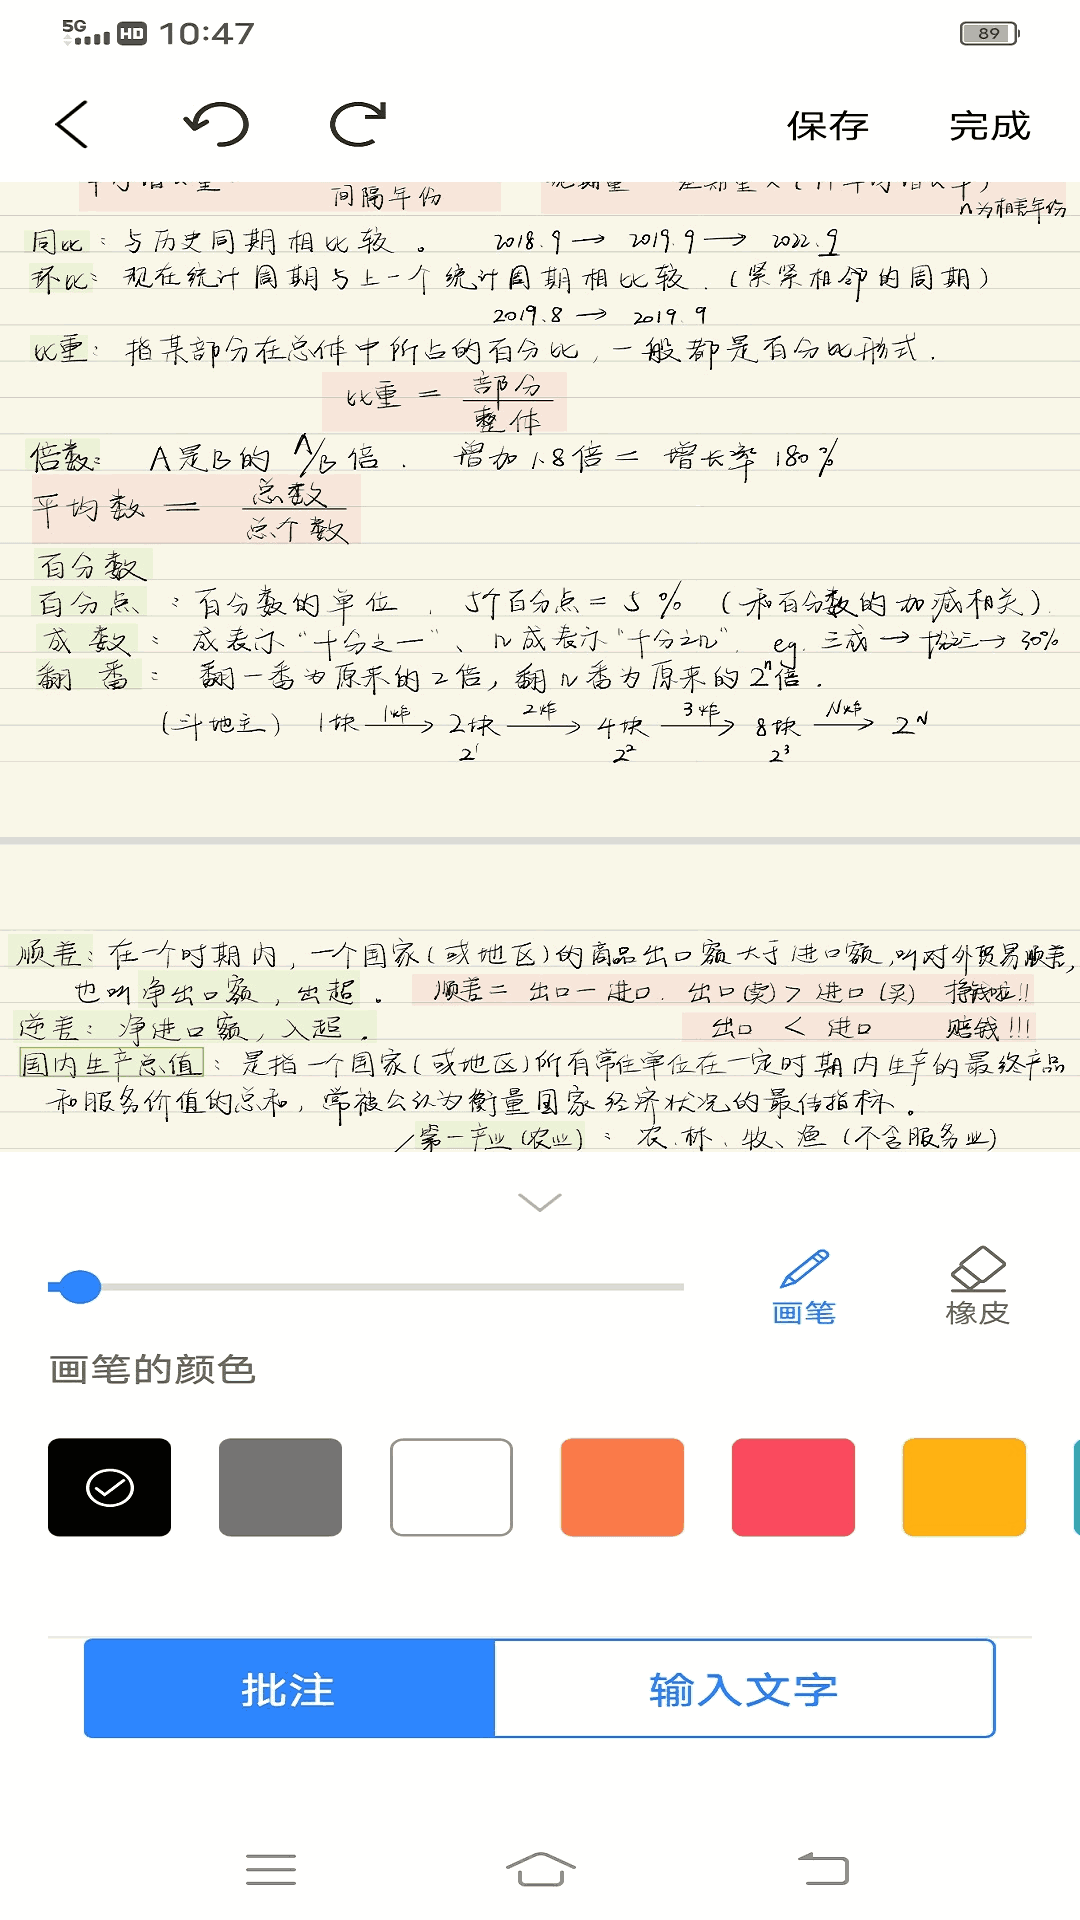 5G HD 10:47 89
保存 完成
间隔年份
n为相差年份
同比：与历史同期相比较。 2018.9 → 2019.9 → 2022.9
环比：现在统计周期与上一个统计周期相比较.（紧紧相邻的周期）
2019.8 → 2019.9
比重：指某部分在总体中所占的百分比，一般都是百分比形式.
比重 = 部分/整体
倍数：A是B的 A/B 倍. 增加1.8倍 = 增长率180%
平均数 = 总数/总个数
百分数
百分点：百分数的单位. 5个百分点 = 5%（和百分数的加减相关）.
成数：成表示“十分之一”、n成表示“十分之n”. eg. 三成 → 十分之三 → 30%
翻番：翻一番为原来的2倍，翻n番为原来的2ⁿ倍.
（斗地主） 1块 —1炸→ 2块 —2炸→ 4块 —3炸→ 8块 —N炸→ 2ᴺ
2¹ 2² 2³
顺差：在一个时期内，一个国家（或地区）的商品出口额大于进口额，叫对外贸易顺差，
也叫净出口额，出超. 顺差 = 出口 - 进口. 出口(卖) > 进口(买) 挣钱啦!!
逆差：净进口额，入超. 出口 < 进口 赔钱!!!
国内生产总值：是指一个国家（或地区）所有常住单位在一定时期内生产的最终产品
和服务价值的总和，常被公认为衡量国家经济状况的最佳指标。
第一产业（农业）：农、林、牧、渔（不含服务业）
画笔 橡皮
画笔的颜色
批注 输入文字